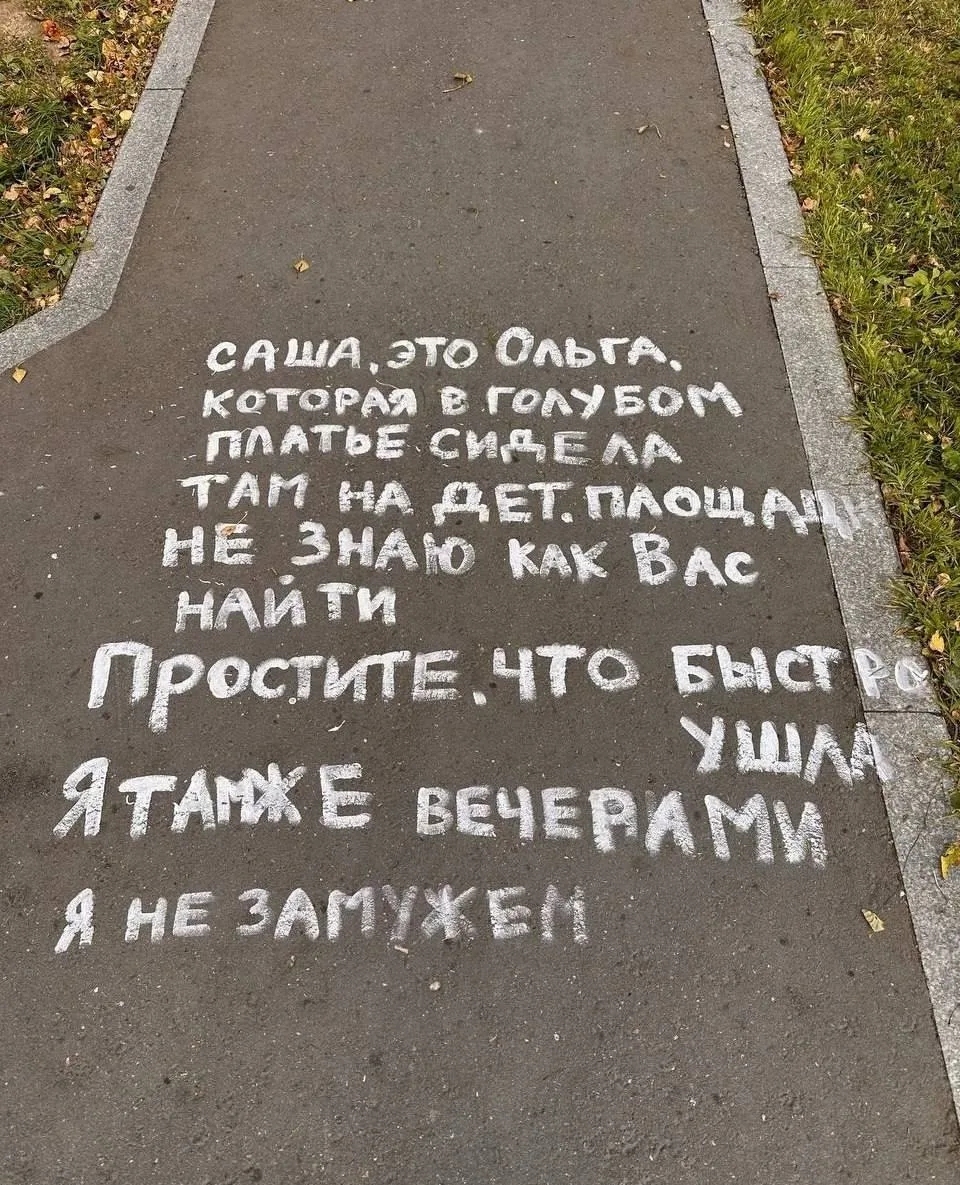 САША, ЭТО ОЛЬГА.
КОТОРАЯ В ГОЛУБОМ
ПЛАТЬЕ СИДЕЛА
ТАМ НА ДЕТ. ПЛОЩАДК
НЕ ЗНАЮ КАК ВАС
НАЙТИ
ПРОСТИТЕ, ЧТО БЫСТРО
УШЛА
Я ТАМЖЕ ВЕЧЕРАМИ
Я НЕ ЗАМУЖЕМ